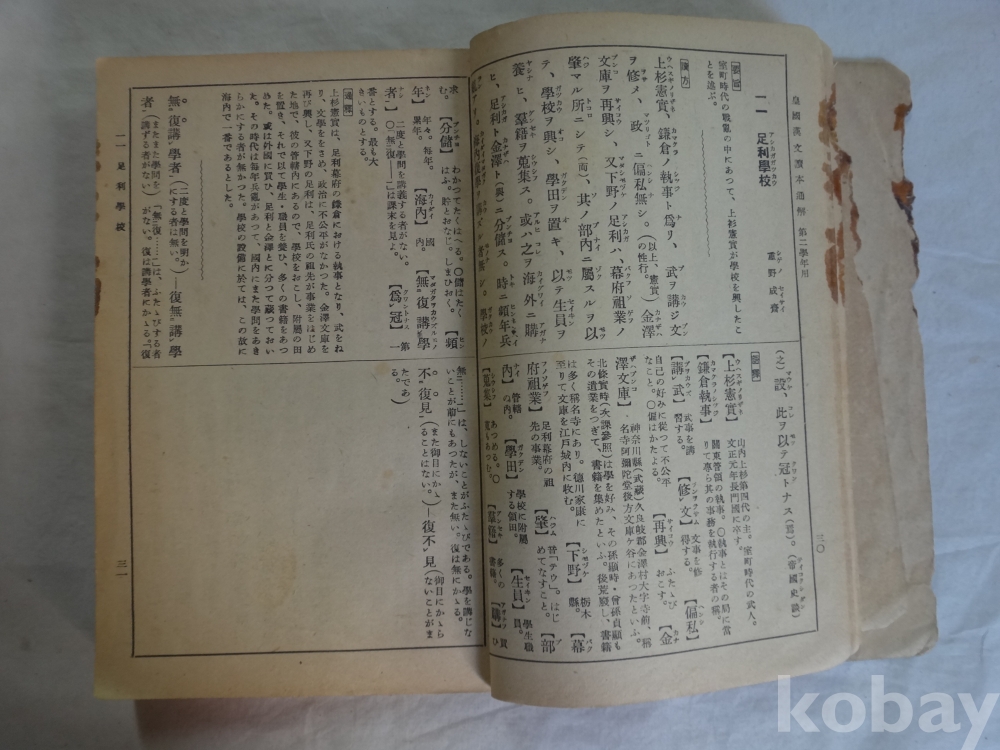 皇國漢文讀本通解 第二學年用
三〇
二 足利學校
重野成齋
要旨
室町時代の戰亂の中にあつて、上杉憲實が學校を興したこ
とを述ぶ。
漢方
上杉憲實、鎌倉ノ執事ト爲リ、武ヲ講ジ文
ヲ修メ、政ニ偏私無シ。(以上、憲實の性行。)金澤
文庫ヲ再興シ、又下野ノ足利ハ、幕府祖業ノ
肇マル所ニシテ(而)、其ノ部内ニ屬スルヲ以
テ、學校ヲ興シ、學田ヲ置キ、以テ生員ヲ
養ヒ、羣籍ヲ蒐集ス。或ハ之ヲ海外ニ購
ヒ、足利ト金澤ト(與)ニ分儲ス。時ニ頻年兵
學校ノ
(之)設、此ヲ以テ冠トナス(爲)。(帝國史談)
【上杉憲實】山内上杉第四代の主。室町時代の武人。
文正元年長門國に卒す。
【鎌倉執事】關東管領の執事。〇執事とはその局に當
りて專ら其の事務を執行する者の稱。
【講武】武事を講習する。【修文】文事を修得する。【偏私】
自己の好みに從つて不公平
なこと。〇偏はかたよる。【再興】ふたゝびおこす。【金
澤文庫】神奈川縣(武藏)久良岐郡金澤村大字寺前、稱
名寺阿彌陀堂後方文庫ケ谷にあつたといふ。
北條實時(次課參照)は學を好み、その孫顯時・曾孫貞顯も
その遺業をつぎて、書籍を集めたといふ。後荒廢し、書籍
は多く稱名寺にあり。德川家康に
至りて文庫を江戸城内に收む。【下野】栃木縣。【幕
府祖業】足利幕府の祖先の事業。【肇】音「テウ」。はじめてなすこと。【部
内】管轄の内。【學田】學校に附屬する領田。【生員】學生職員。
【蒐集】あつめる。【羣籍】多くの書籍。【購】買ひ
求む。【分儲】わかつてたくはへる。〇儲はたくはふ、貯とおなじ。しまひおく。【頻
年】年々。毎年。累年。【海内】國内。【無復講學
者】二度と學問を講義する者がない。〇「無復——」は課末を見よ。【爲冠】第一
番とする。最も大
きいものとする。
通釋
上杉憲實は、足利幕府の鎌倉における執事となり、武をね
り、文學ををさめ、政治に不公平がなかつた。金澤文庫を
再び興し、又下野の足利は、足利氏の祖先が事業をはじめ
た地で、彼の管轄内にあるので、學校をおこし、附屬の田
を置き、それで以て學生・職員を養ひ、多くの書籍をあつ
めた。或は外國に買ひ、足利と金澤とに分つて藏つておい
た。その時代は毎年兵亂があつて、國内にまた學問をあき
らかにする者が無かつた。學校の設備に於ては、この故に
海内で一番であるとした。
無復講學者(二度と學問を明かにする者は無い。)—復無講學
者(またまた學問を講ずる者がない)「無復……」は、ふたゝびする者
がない。復は講學者にかゝる。「復
無……」は、しないことがふたゝびである。學を講じな
いことが前にもあつたが、また無い。復は無にかゝる。
不復見(また御目にかゝることはない。)—復不見(御目にかゝらないことがまたであ
る。)
二 足利學校
三一
kobay